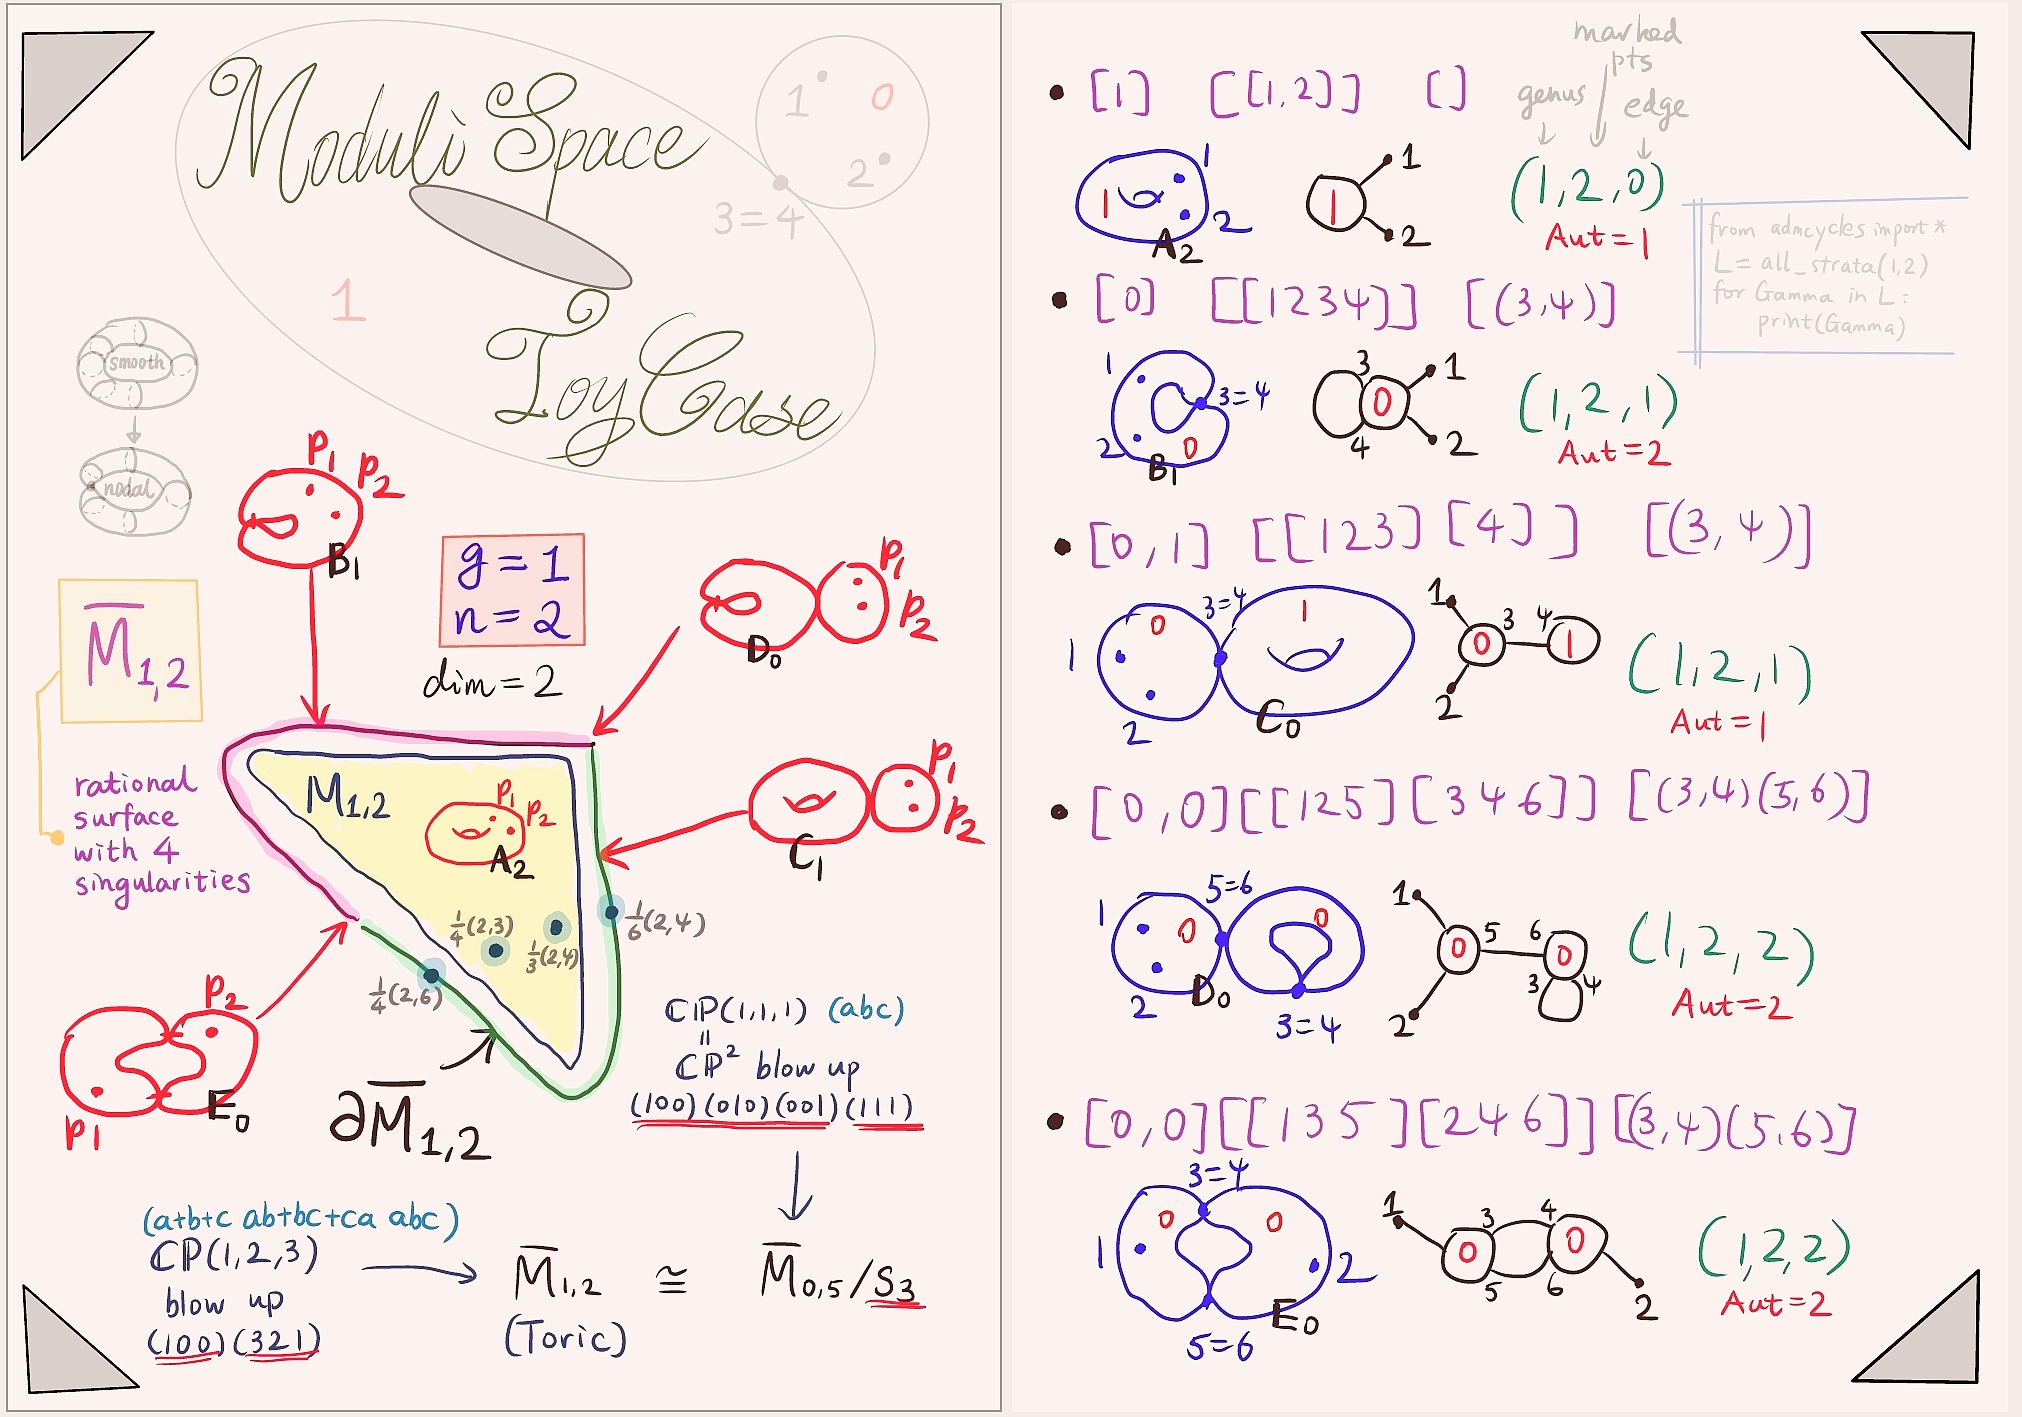 Moduli Space
Toy Case
1
0
2
3=4
1
smooth
nodal
P1 P2
B1
g = 1
n = 2
dim = 2
P1
P2
D0
M̅1,2
rational
surface
with 4
singularities
M1,2
P1 P2
A2
P1
P2
C1
1/4(2,3)
1/3(2,4)
1/6(2,4)
1/4(2,6)
P2
P1
E0
∂M̅1,2
ℂℙ(1,1,1) (abc)
=
ℂℙ² blow up
(100)(010)(001)(111)
(a+b+c ab+bc+ca abc)
ℂℙ(1,2,3)
blow up
(100)(321)
M̅1,2 ≅ M̅0,5/S3
(Toric)
marked
pts
genus
edge
• [1] [[1,2]] []
1 1 2 A2
1 1 2
(1,2,0)
Aut=1
from admcycles import *
L = all_strata(1,2)
for Gamma in L:
print(Gamma)
• [0] [[1234]] [(3,4)]
1 2 3=4 0 B1
3 4 0 1 2
(1,2,1)
Aut=2
• [0,1] [[123][4]] [(3,4)]
1 2 0 3=4 1 C0
1 2 0 3 4 1
(1,2,1)
Aut=1
• [0,0][[125][346]] [(3,4)(5,6)]
1 2 0 5=6 0 3=4 D0
1 2 0 5 6 0 3 4
(1,2,2)
Aut=2
• [0,0][[135][246]][(3,4)(5,6)]
3=4
1 0 0 2 E0
5=6
1 0 3 5 4 6 0 2
(1,2,2)
Aut=2